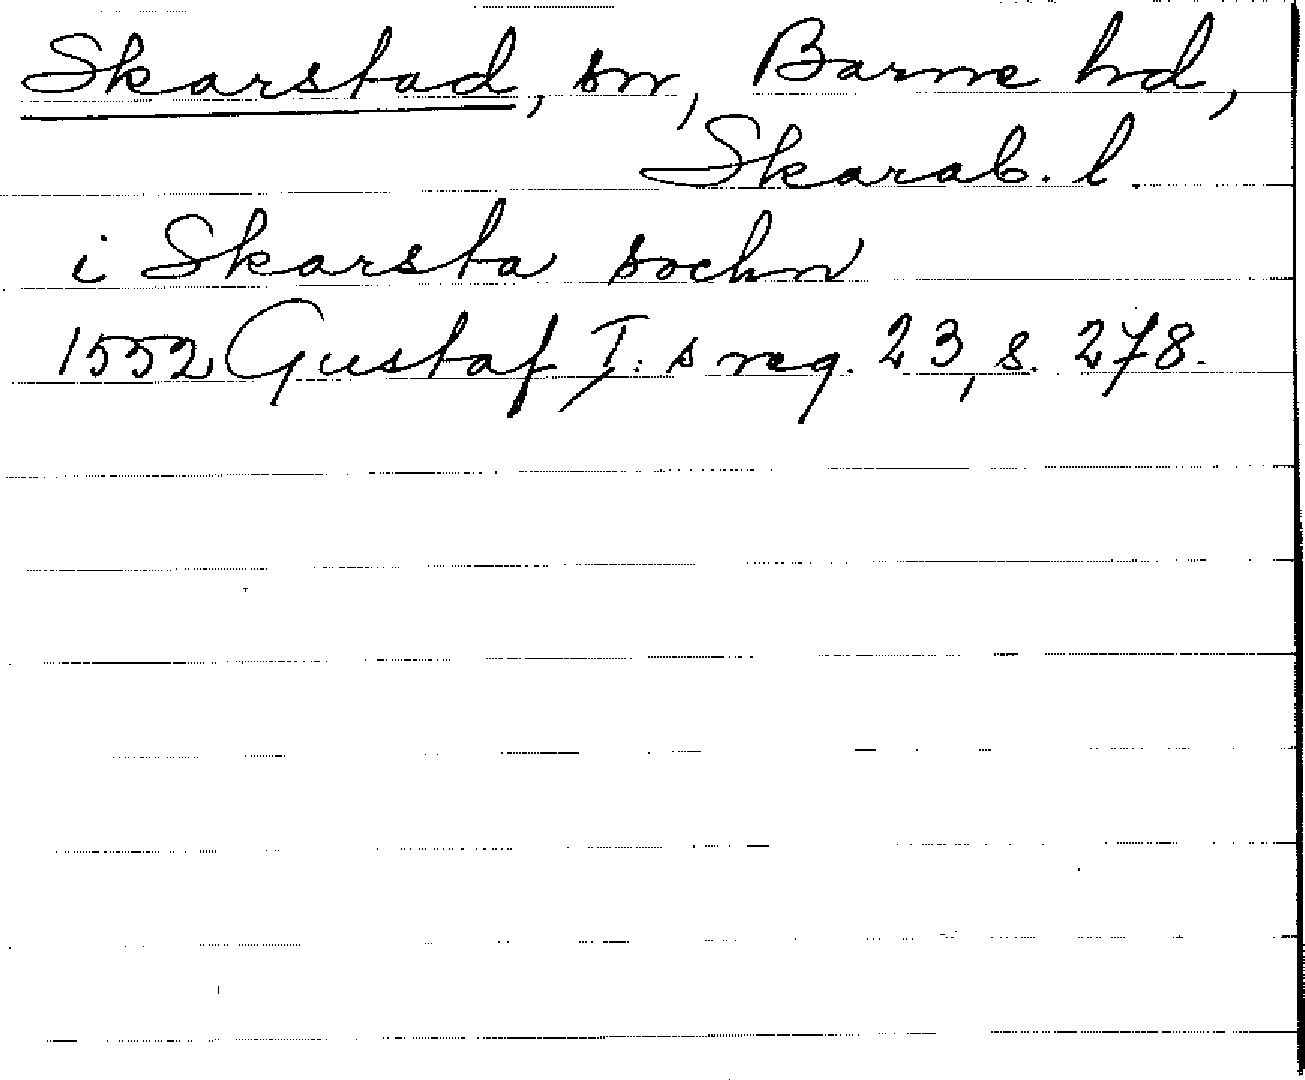 Skarstad, sn, Barne hd,
Skarab. l
i Skarsta sochn
1552 Gustaf I:s reg. 23, s. 278.